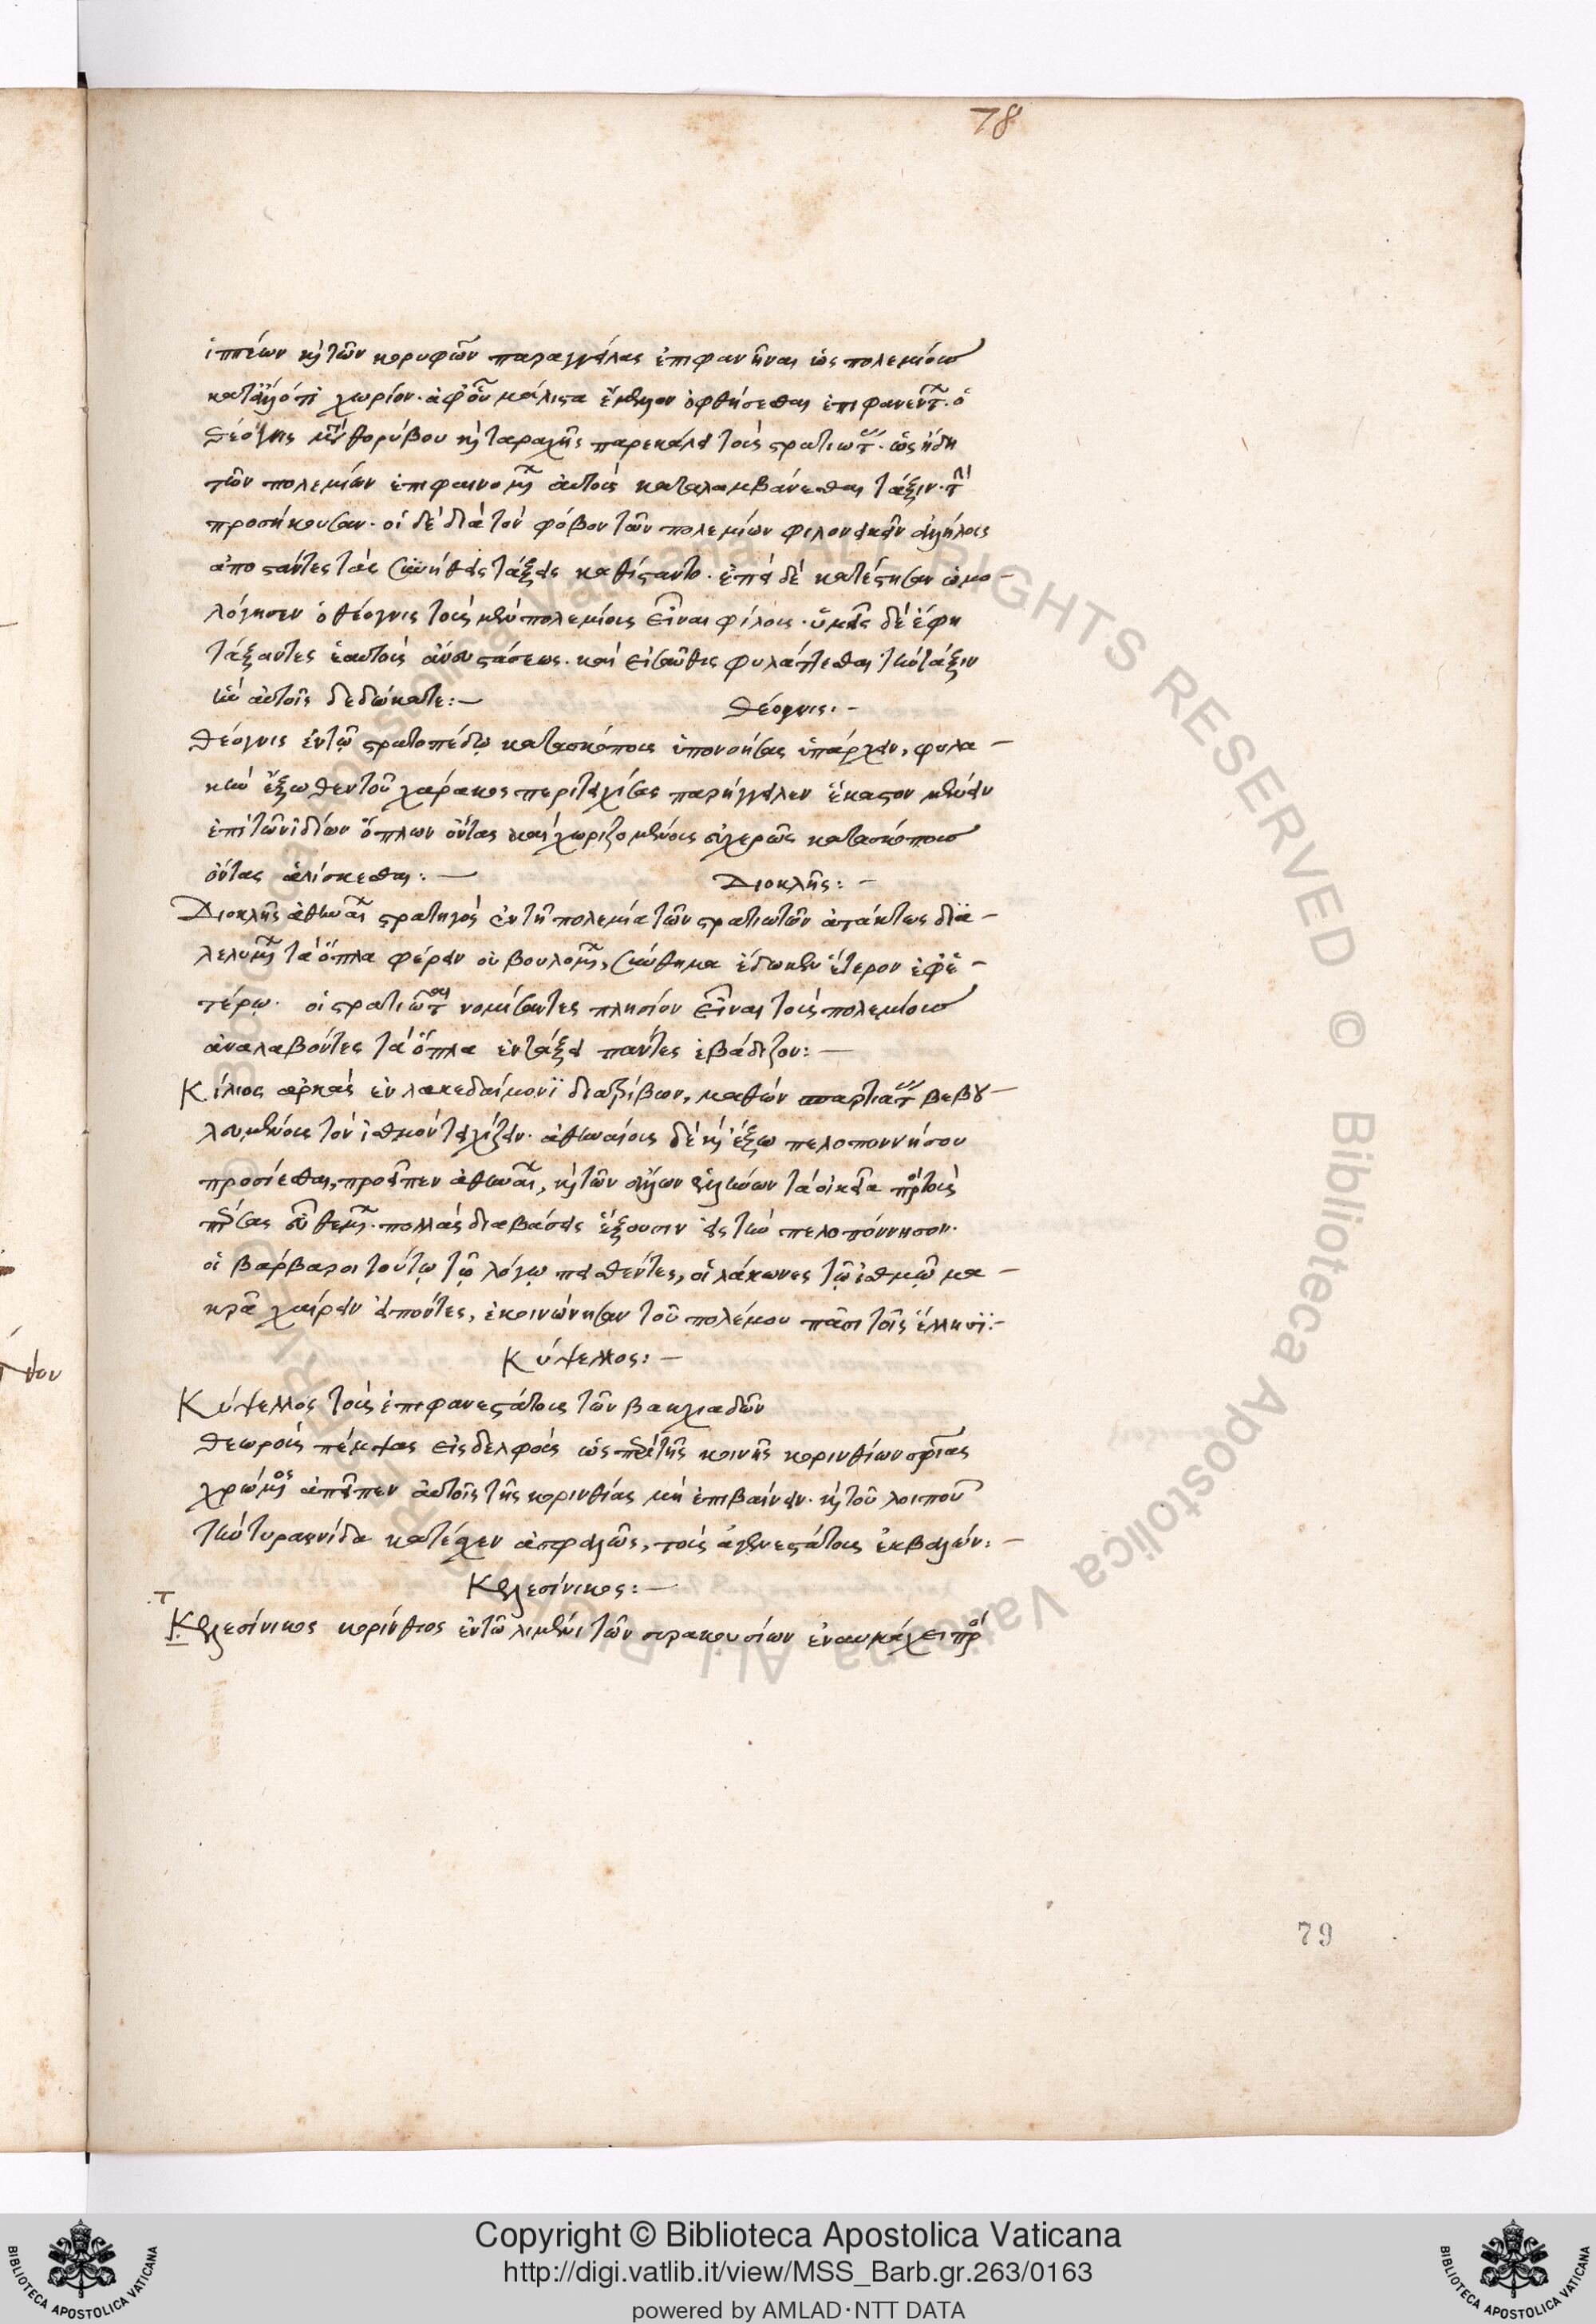 78
ἱππέων κ τῶν κορυφῶν παραγγείλας ἐπιφανῆναι ὡς πολεμίους
χωρίον· ἀφ' οὗ μάλιστα ἔμελλον ὀφθήσεσθαι ἐπιφανέντ· ὁ
Θέογνις μετὰ θορύβου κ ταραχῆς παρεκάλει τοὺς στρατιώτ· ὡς ἤδη
τῶν πολεμίων ἐπιφαινομ αὐτοὺς καταλαμβάνεσθαι τάξιν·
προσήκουσαν· οἱ δὲ διὰ τὸν φόβον τῶν πολεμίων φιλονεικεῖν ἀλλήλοις
ἀποστάντες τὰς συνήθεις τάξεις καθίσταντο· ἐπεὶ δὲ κατέστησαν ὡμο-
λόγησεν ὁ θέογνις τοὺς μὲν πολεμίους εἶναι φίλους· ὑμεῖς δὲ ἔφη
τάξαντες ἑαυτοὺς ἄνευ στάσεως· καὶ εἰσαῦθις φυλάττεσθαι τὴν τάξιν
ἣν αὐτοῖς δεδώκατε:— Θέογνις:-
Θέογνις ἐν τῷ στρατοπέδῳ κατασκόπους ὑπονοήσας ὑπάρχειν, φυλα-
κὴν ἔξωθεν τοῦ χάρακος περιτειχίσας παρήγγειλεν ἕκαστον μένειν
ἐπὶ τῶν ἰδίων ὅπλων ὄντας καὶ χωριζομένους εὐχερῶς κατασκόπους
ὄντας ἁλίσκεσθαι:— Διοκλῆς:-
Διοκλῆς ἀθηναῖ στρατηγὸς ἐν τῇ πολεμία τῶν στρατιωτῶν ἀτάκτως δϊα-
λελυμ τὰ ὅπλα φέρειν οὐ βουλομ, σύνθημα ἔδωκεν ἕτερον ἐφ' ἑ-
τέρῳ· οἱ στρατιῶται νομίσαντες πλησίον εἶναι τοὺς πολεμίους
ἀναλαβόντες τὰ ὅπλα ἐν τάξει πάντες ἐβάδιζον:—
Κίλιος ἀρκὰς ἐν λακεδαίμονϊ διατρίβων, μαθὼν σπαρτιάτ βεβου-
λευμένους τὸν ἰσθμὸν τειχίζειν· ἀθηναίους δὲ κ ἔξω πελοποννήσου
προσίεσθαι, προεῖπεν ἀθηναῖ, κ τῶν ἄλλων ἑλλήνων τὰ οἰκεῖα πρὸς τοὺς
πέρσας συνθεμ· πολλὰς διαβάσεις ἕξουσιν εἰς τὴν πελοπόννησον·
οἱ βάρβαροι τούτῳ τῷ λόγῳ πεισθέντες, οἱ λάκωνες τῷ ἰσθμῷ μα-
κρὰ χαίρειν εἰπόντες, ἐκοινώνησαν τοῦ πολέμου πᾶσι τοῖς ἕλλησϊ:-
Κύψελλος:—
Κύψελλος τοὺς ἐπιφανεστάτους τῶν βακχιαδῶν
θεωροὺς πέμψας εἰς δελφοὺς ὡς περὶ τῆς κοινῆς κορινθίων σωτηρίας
χρωμος ἀπεῖπεν αὐτοῖς τῆς κορινθίας μὴ ἐπιβαίνειν· κ τοῦ λοιποῦ
τὴν τυραννίδα κατέχειν ἀσφαλῶς, τοὺς εὐγενεστάτους ἐκβαλών:-
Κελεσίνικος:—
Κελεσίνικος κορίνθιος ἐν τῷ λιμένι τῶν συρακουσίων ἐναυμάχει πρὸ
79
Copyright © Biblioteca Apostolica Vaticana
http://digi.vatlib.it/view/MSS_Barb.gr.263/0163
powered by AMLAD·NTT DATA
BIBLIOTECA APOSTOLICA VATICANA
BIBLIOTECA APOSTOLICA VATICANA